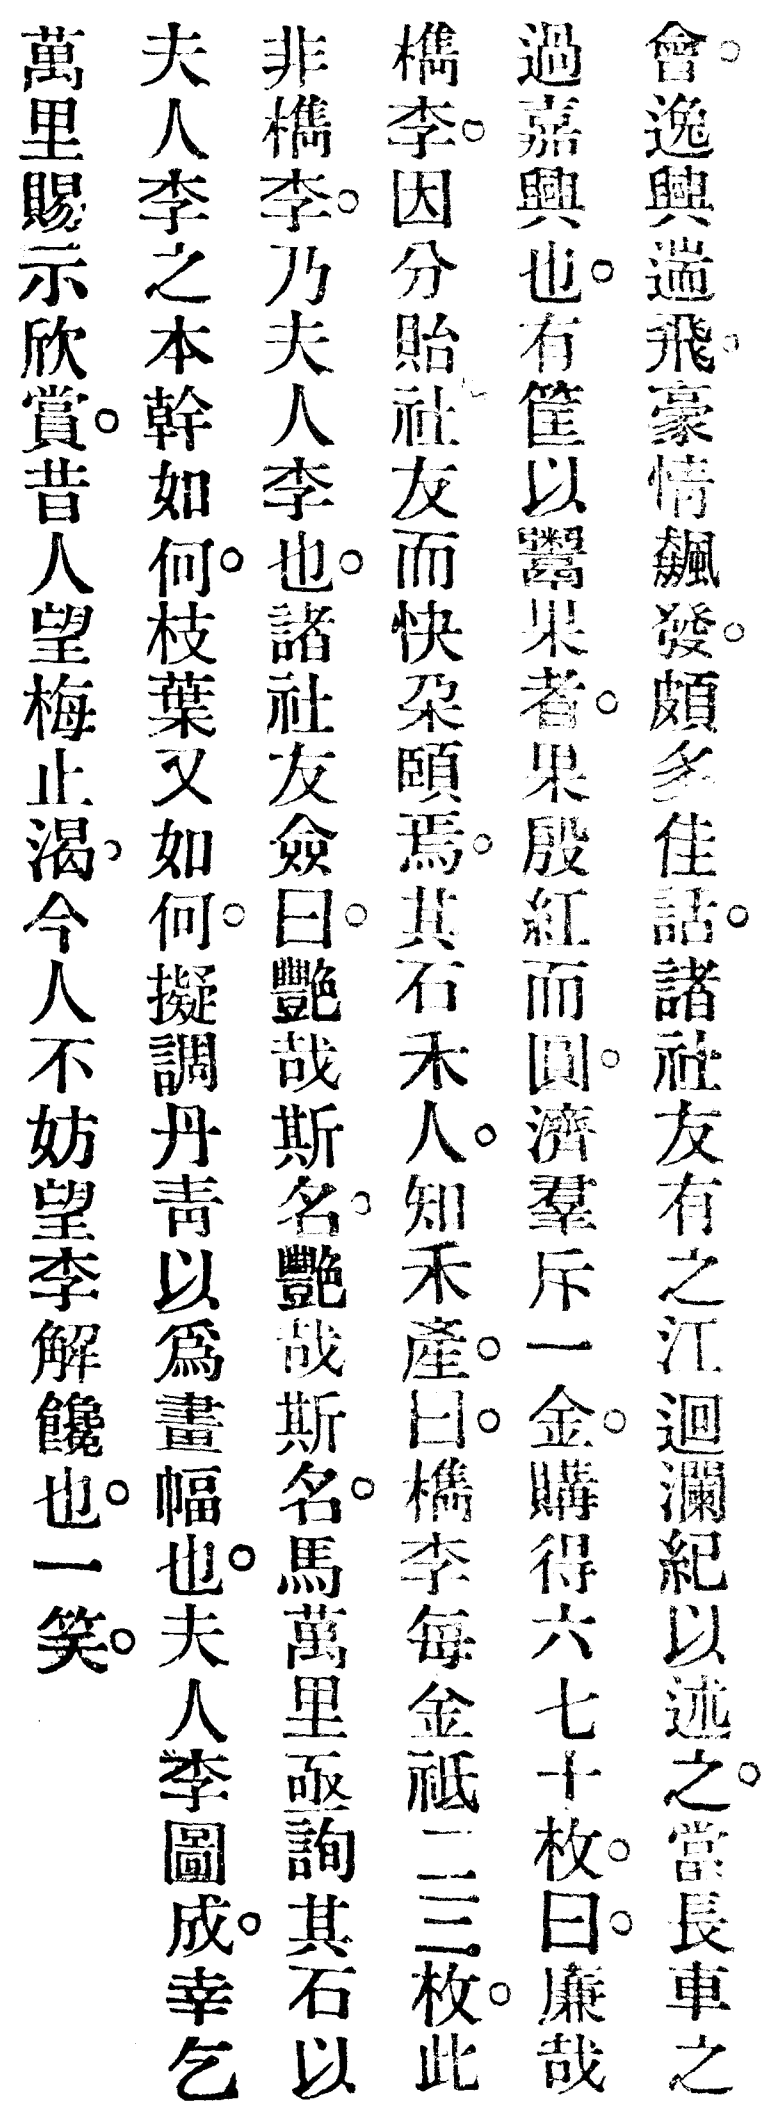 會。逸興遄飛。豪情飆發。頗多佳話。諸社友有之江迴瀾紀以述之。當長車之
過嘉興也。有筐以鬻果者。果殷紅而圓。濟羣斥一金。購得六七十枚。曰。廉哉
檇李。因分貽社友而快朶頤焉。其石禾人。知禾產。曰。檇李每金祗二三枚。此
非檇李。乃夫人李也。諸社友僉曰。艷哉斯名。豔哉斯名。馬萬里亟詢其石以
夫人李之本幹如何。枝葉又如何。擬調丹靑以爲畫幅也。夫人李圖成。幸乞
萬里賜示欣賞。昔人望梅止渴。今人不妨望李解饞也。一笑。